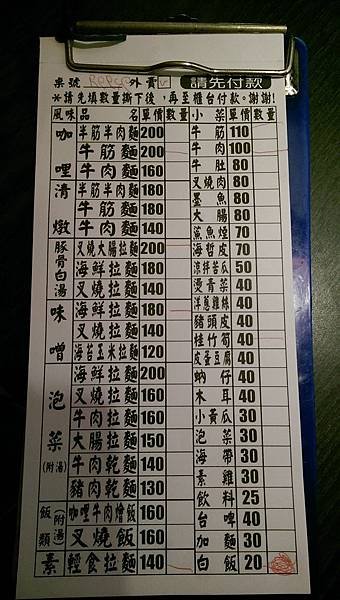 桌號 外賣 V 請先付款
*請先填數量撕下後，再至櫃台付款。謝謝!
風味 品名 單價 數量
咖哩
半筋半肉麵 200
牛筋麵 200
牛肉麵 160
清燉
半筋半肉麵 180
牛筋麵 180
牛肉麵 140
豚骨白湯
叉燒大腸拉麵 200
海鮮拉麵 180
叉燒拉麵 140
味噌
海鮮拉麵 180
叉燒拉麵 140
海苔玉米拉麵 120
泡菜(附湯)
海鮮拉麵 200
叉燒拉麵 160
牛肉拉麵 160
大腸拉麵 150
牛肉乾麵 140
豬肉乾麵 130
飯類(附湯)
咖哩牛肉燴飯 160
叉燒飯 160
素 輕食拉麵 140
小菜 單價 數量
牛筋 110
牛肉 100
牛肚 80
叉燒肉 80
墨魚 80
大腸 80
鯊魚煙 70
海哲皮 70
涼拌苦瓜 50
燙青菜 40
洋蔥雞絲 40
豬頭皮 40
桂竹筍 40
皮蛋豆腐 40
蚋仔 40
木耳 40
小黃瓜 30
泡菜 30
海帶 30
素雞 30
飲料 25
台啤 40
加麵 30
白飯 20